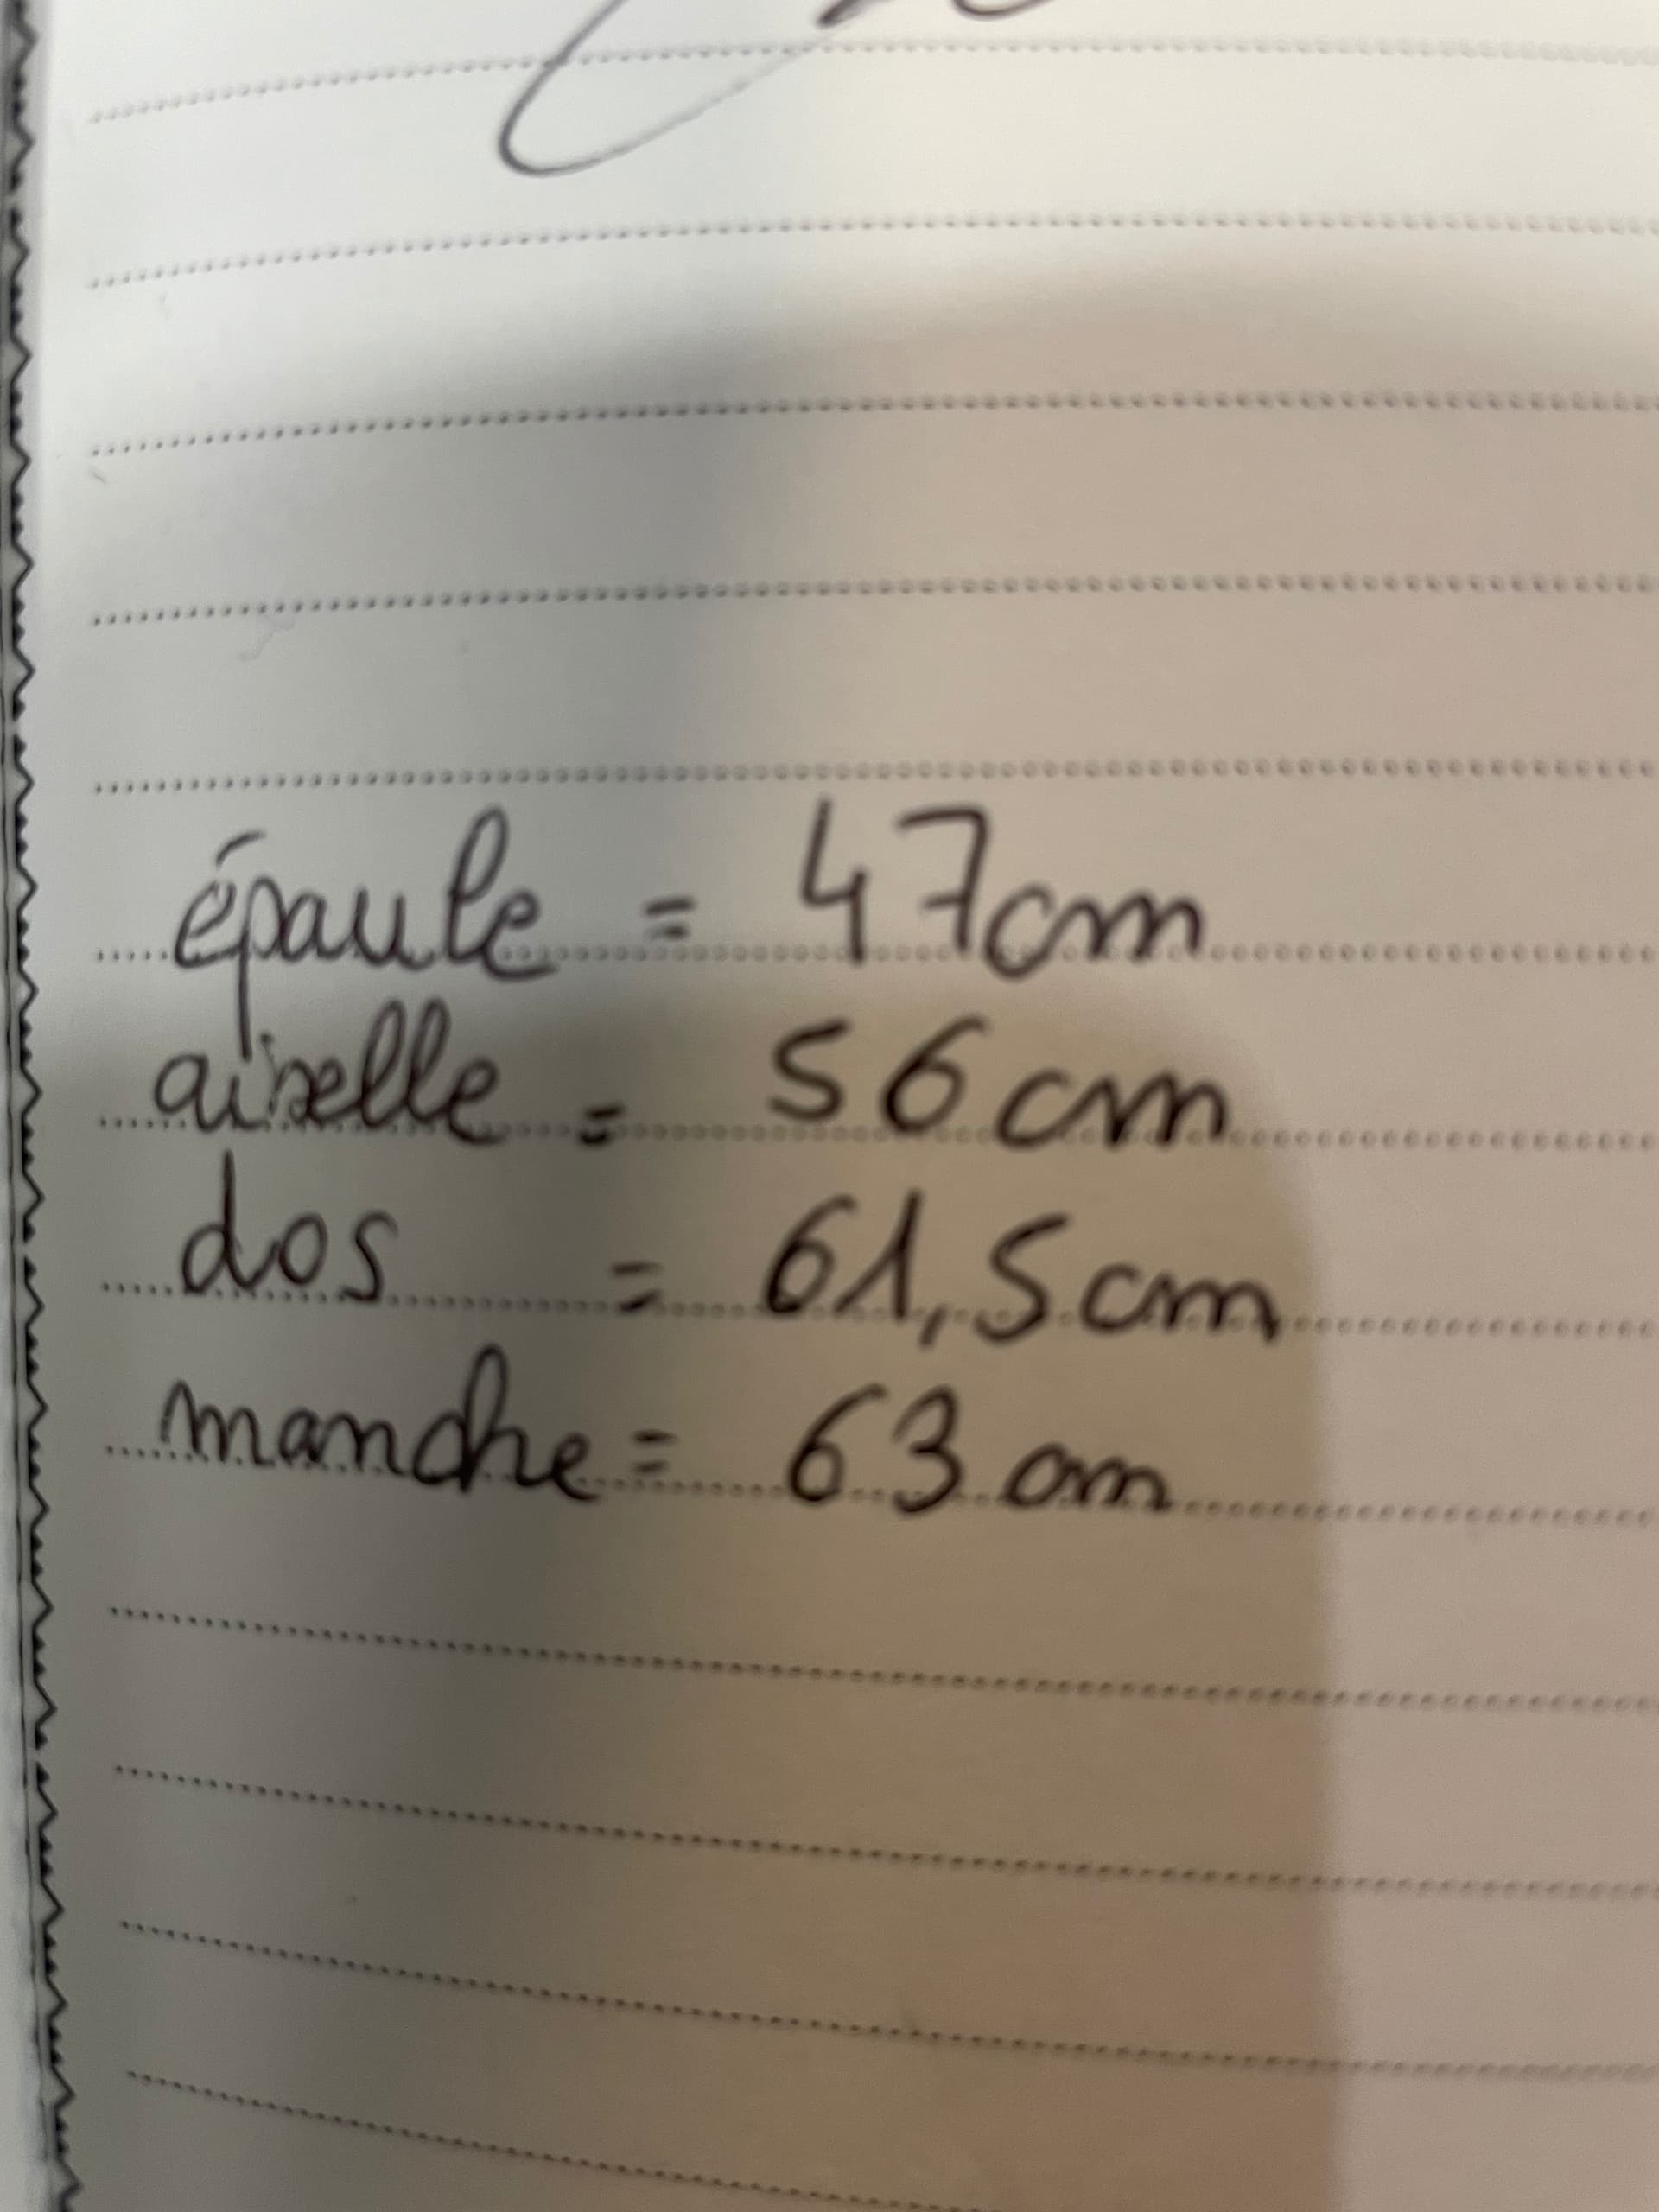 épaule = 47cm
aixelle = 56cm
dos = 61,5cm
manche = 63 cm